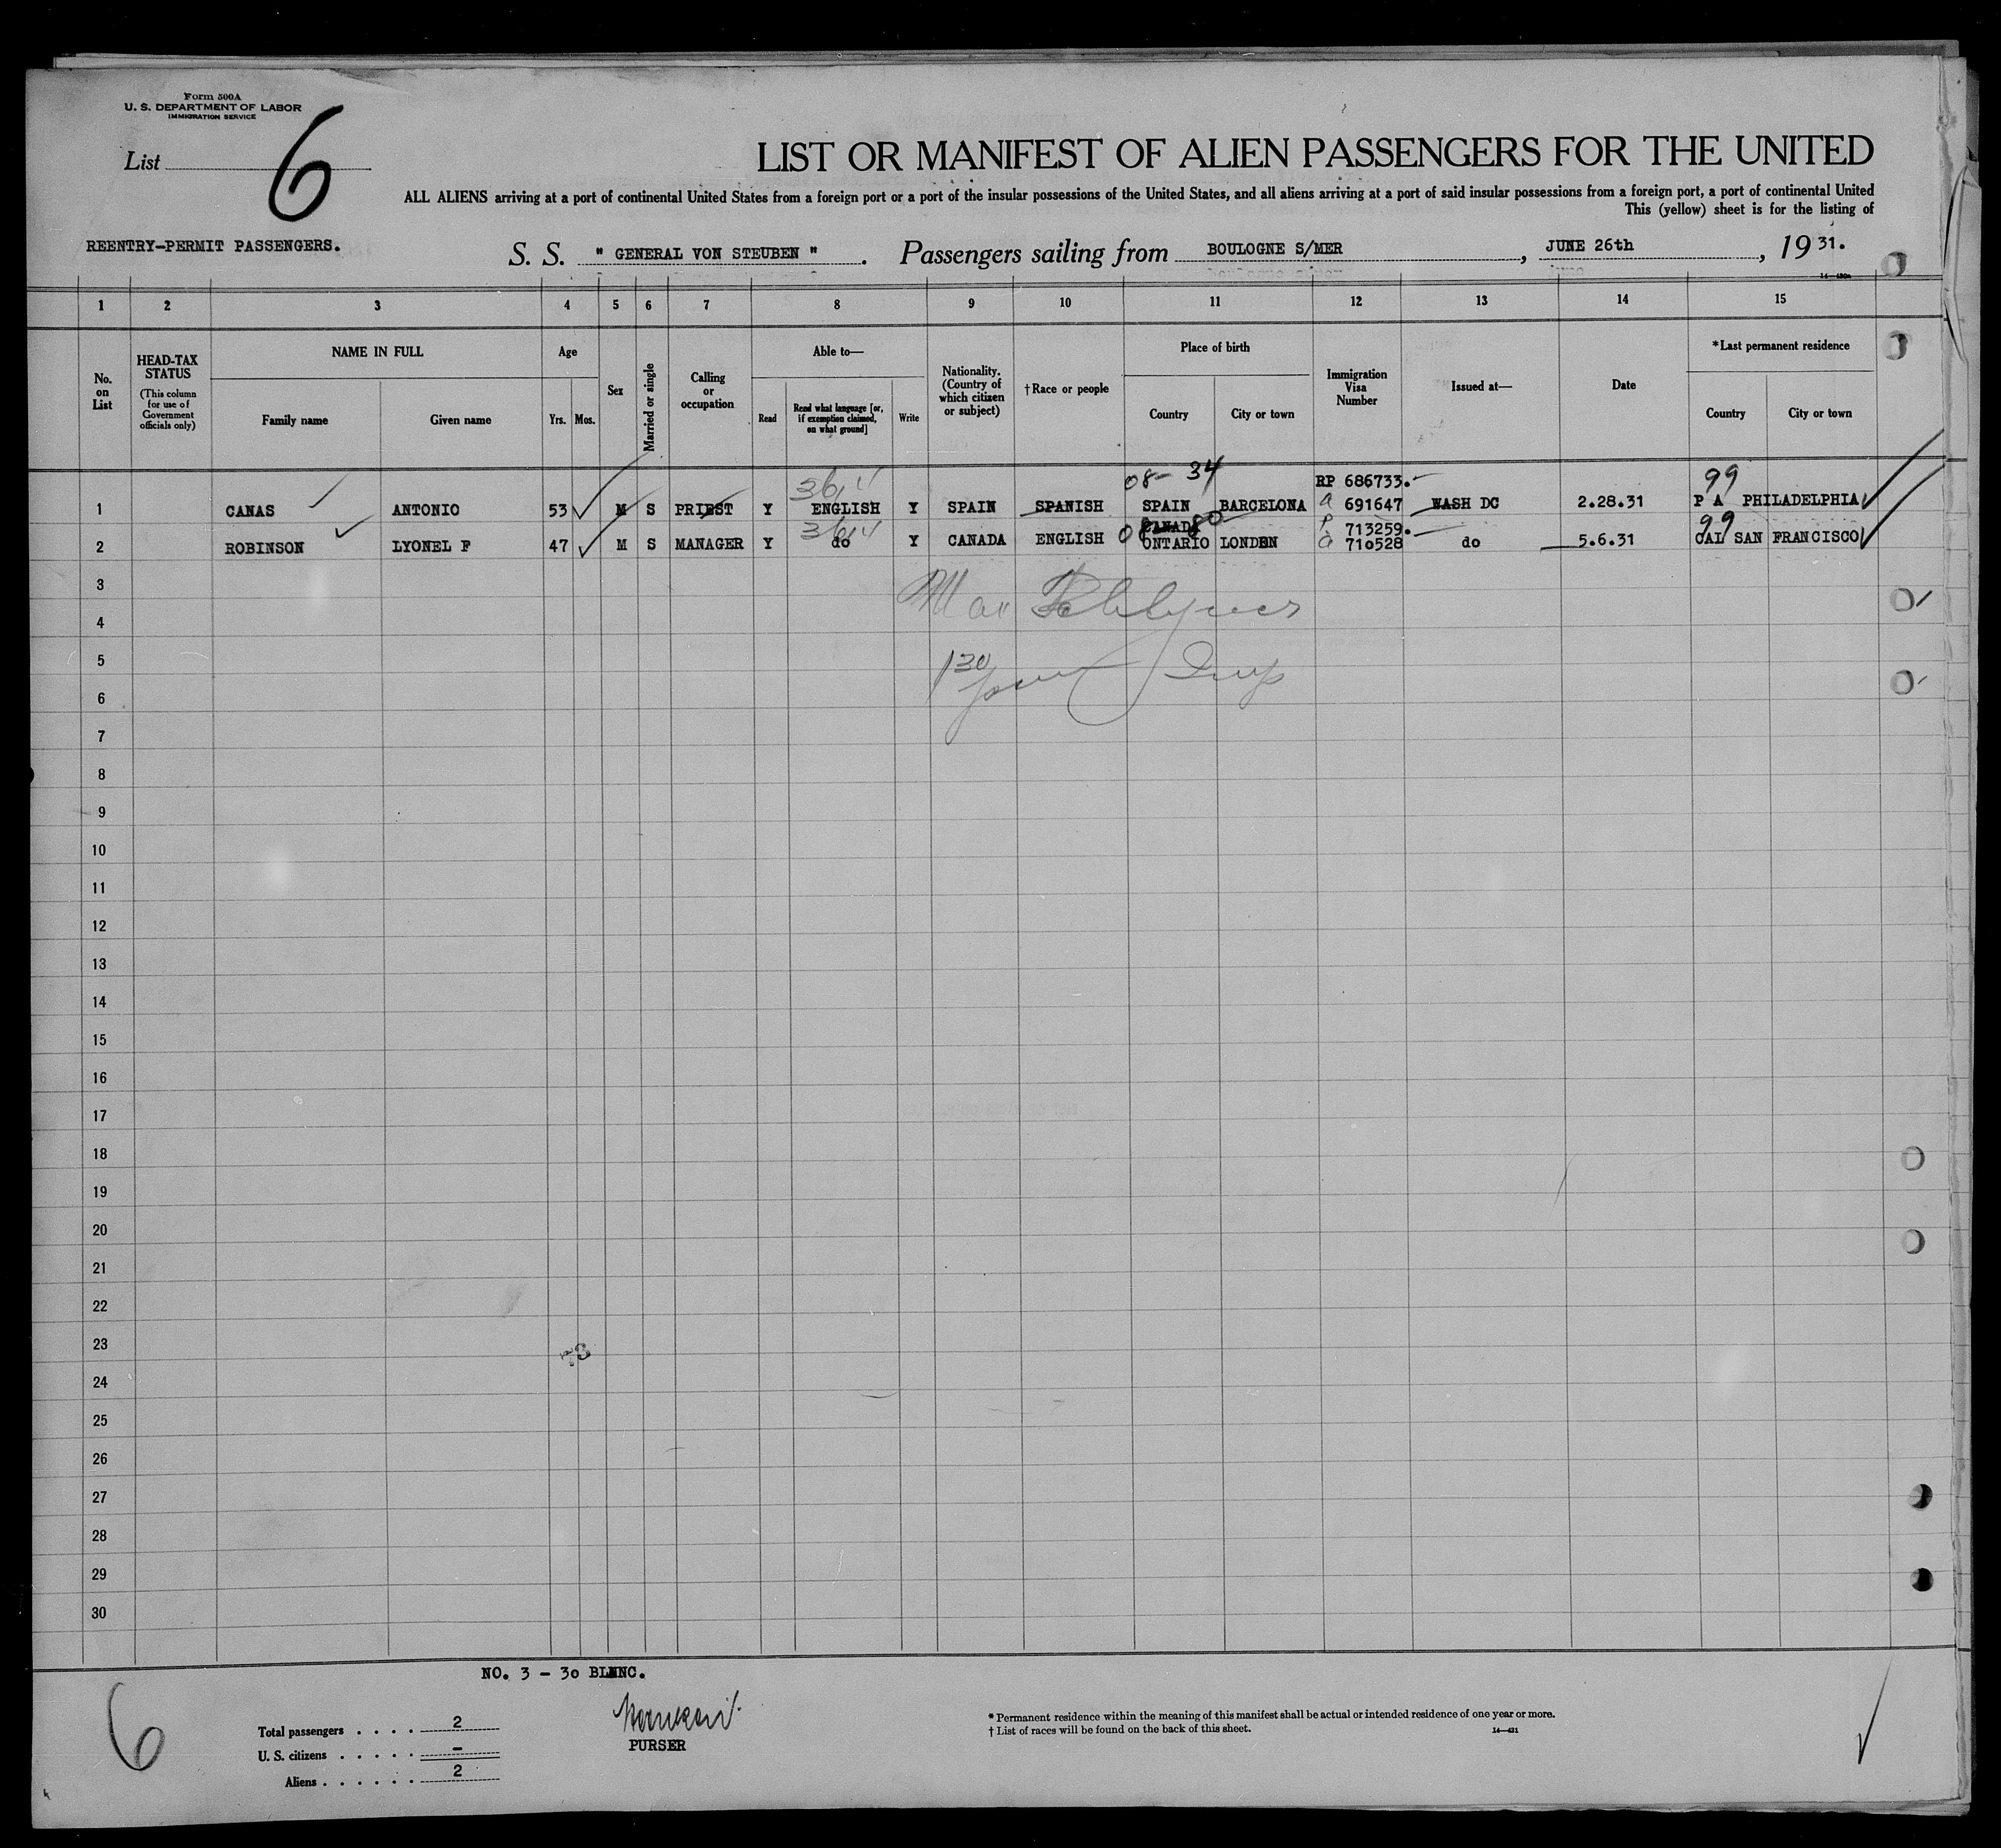 Form 500A
U. S. DEPARTMENT OF LABOR
IMMIGRATION SERVICE
List 6
LIST OR MANIFEST OF ALIEN PASSENGERS FOR THE UNITED
ALL ALIENS arriving at a port of continental United States from a foreign port or a port of the insular possessions of the United States, and all aliens arriving at a port of said insular possessions from a foreign port, a port of continental United
This (yellow) sheet is for the listing of
REENTRY-PERMIT PASSENGERS.
S. S. " GENERAL VON STEUBEN " . Passengers sailing from BOULOGNE S/MER , JUNE 26th , 19 31.
1 2 3 4 5 6 7 8 9 10 11 12 13 14 15
No. on List
HEAD-TAX STATUS
(This column for use of Government officials only)
NAME IN FULL
Family name
Given name
Age
Yrs. Mos.
Sex
Married or single
Calling or occupation
Able to—
Read
Read what language [or, if exemption claimed, on what ground]
Write
Nationality. (Country of which citizen or subject)
†Race or people
Place of birth
Country
City or town
Immigration Visa Number
Issued at—
Date
*Last permanent residence
Country
City or town
08- 34
RP 686733.
99
1 CANAS ANTONIO 53 M S PRIEST Y ENGLISH Y SPAIN SPANISH SPAIN BARCELONA a 691647 WASH DC 2.28.31 P A PHILADELPHIA
CANADA
713259.
99
2 ROBINSON LYONEL F 47 M S MANAGER Y do Y CANADA ENGLISH ONTARIO LONDON 710528 do 5.6.31 CAL SAN FRANCISCO
3
4
5
130
6
7
8
9
10
11
12
13
14
15
16
17
18
19
20
21
22
23
24
25
26
27
28
29
30
NO. 3 - 30 BLANC.
6
Total passengers . . . . 2
U. S. citizens . . . . . -
Aliens . . . . . . 2
PURSER
* Permanent residence within the meaning of this manifest shall be actual or intended residence of one year or more.
† List of races will be found on the back of this sheet.
14—421